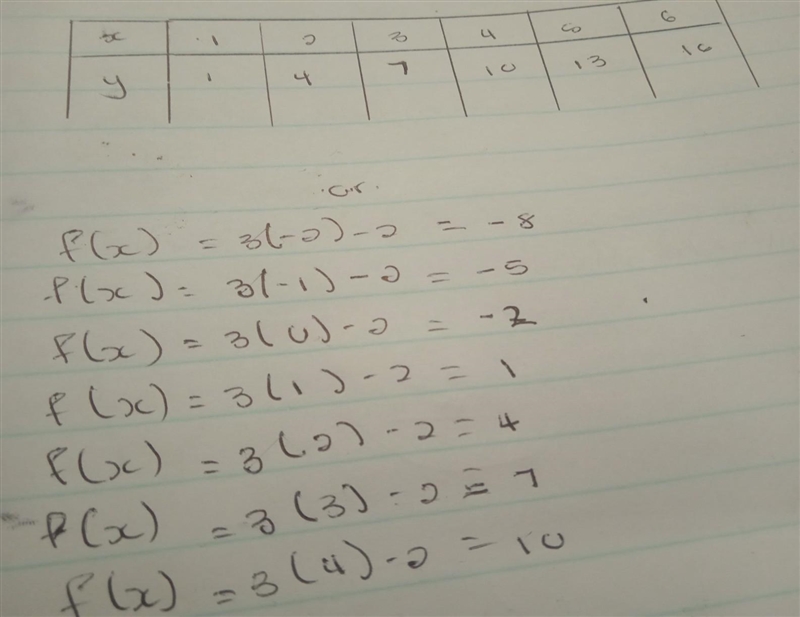 x 1 2 3 4 5 6
y 1 4 7 10 13 16
or
f(x) = 3(-2) - 2 = -8
f(x) = 3(-1) - 2 = -5
f(x) = 3(0) - 2 = -2
f(x) = 3(1) - 2 = 1
f(x) = 3(2) - 2 = 4
f(x) = 3(3) - 2 = 7
f(x) = 3(4) - 2 = 10